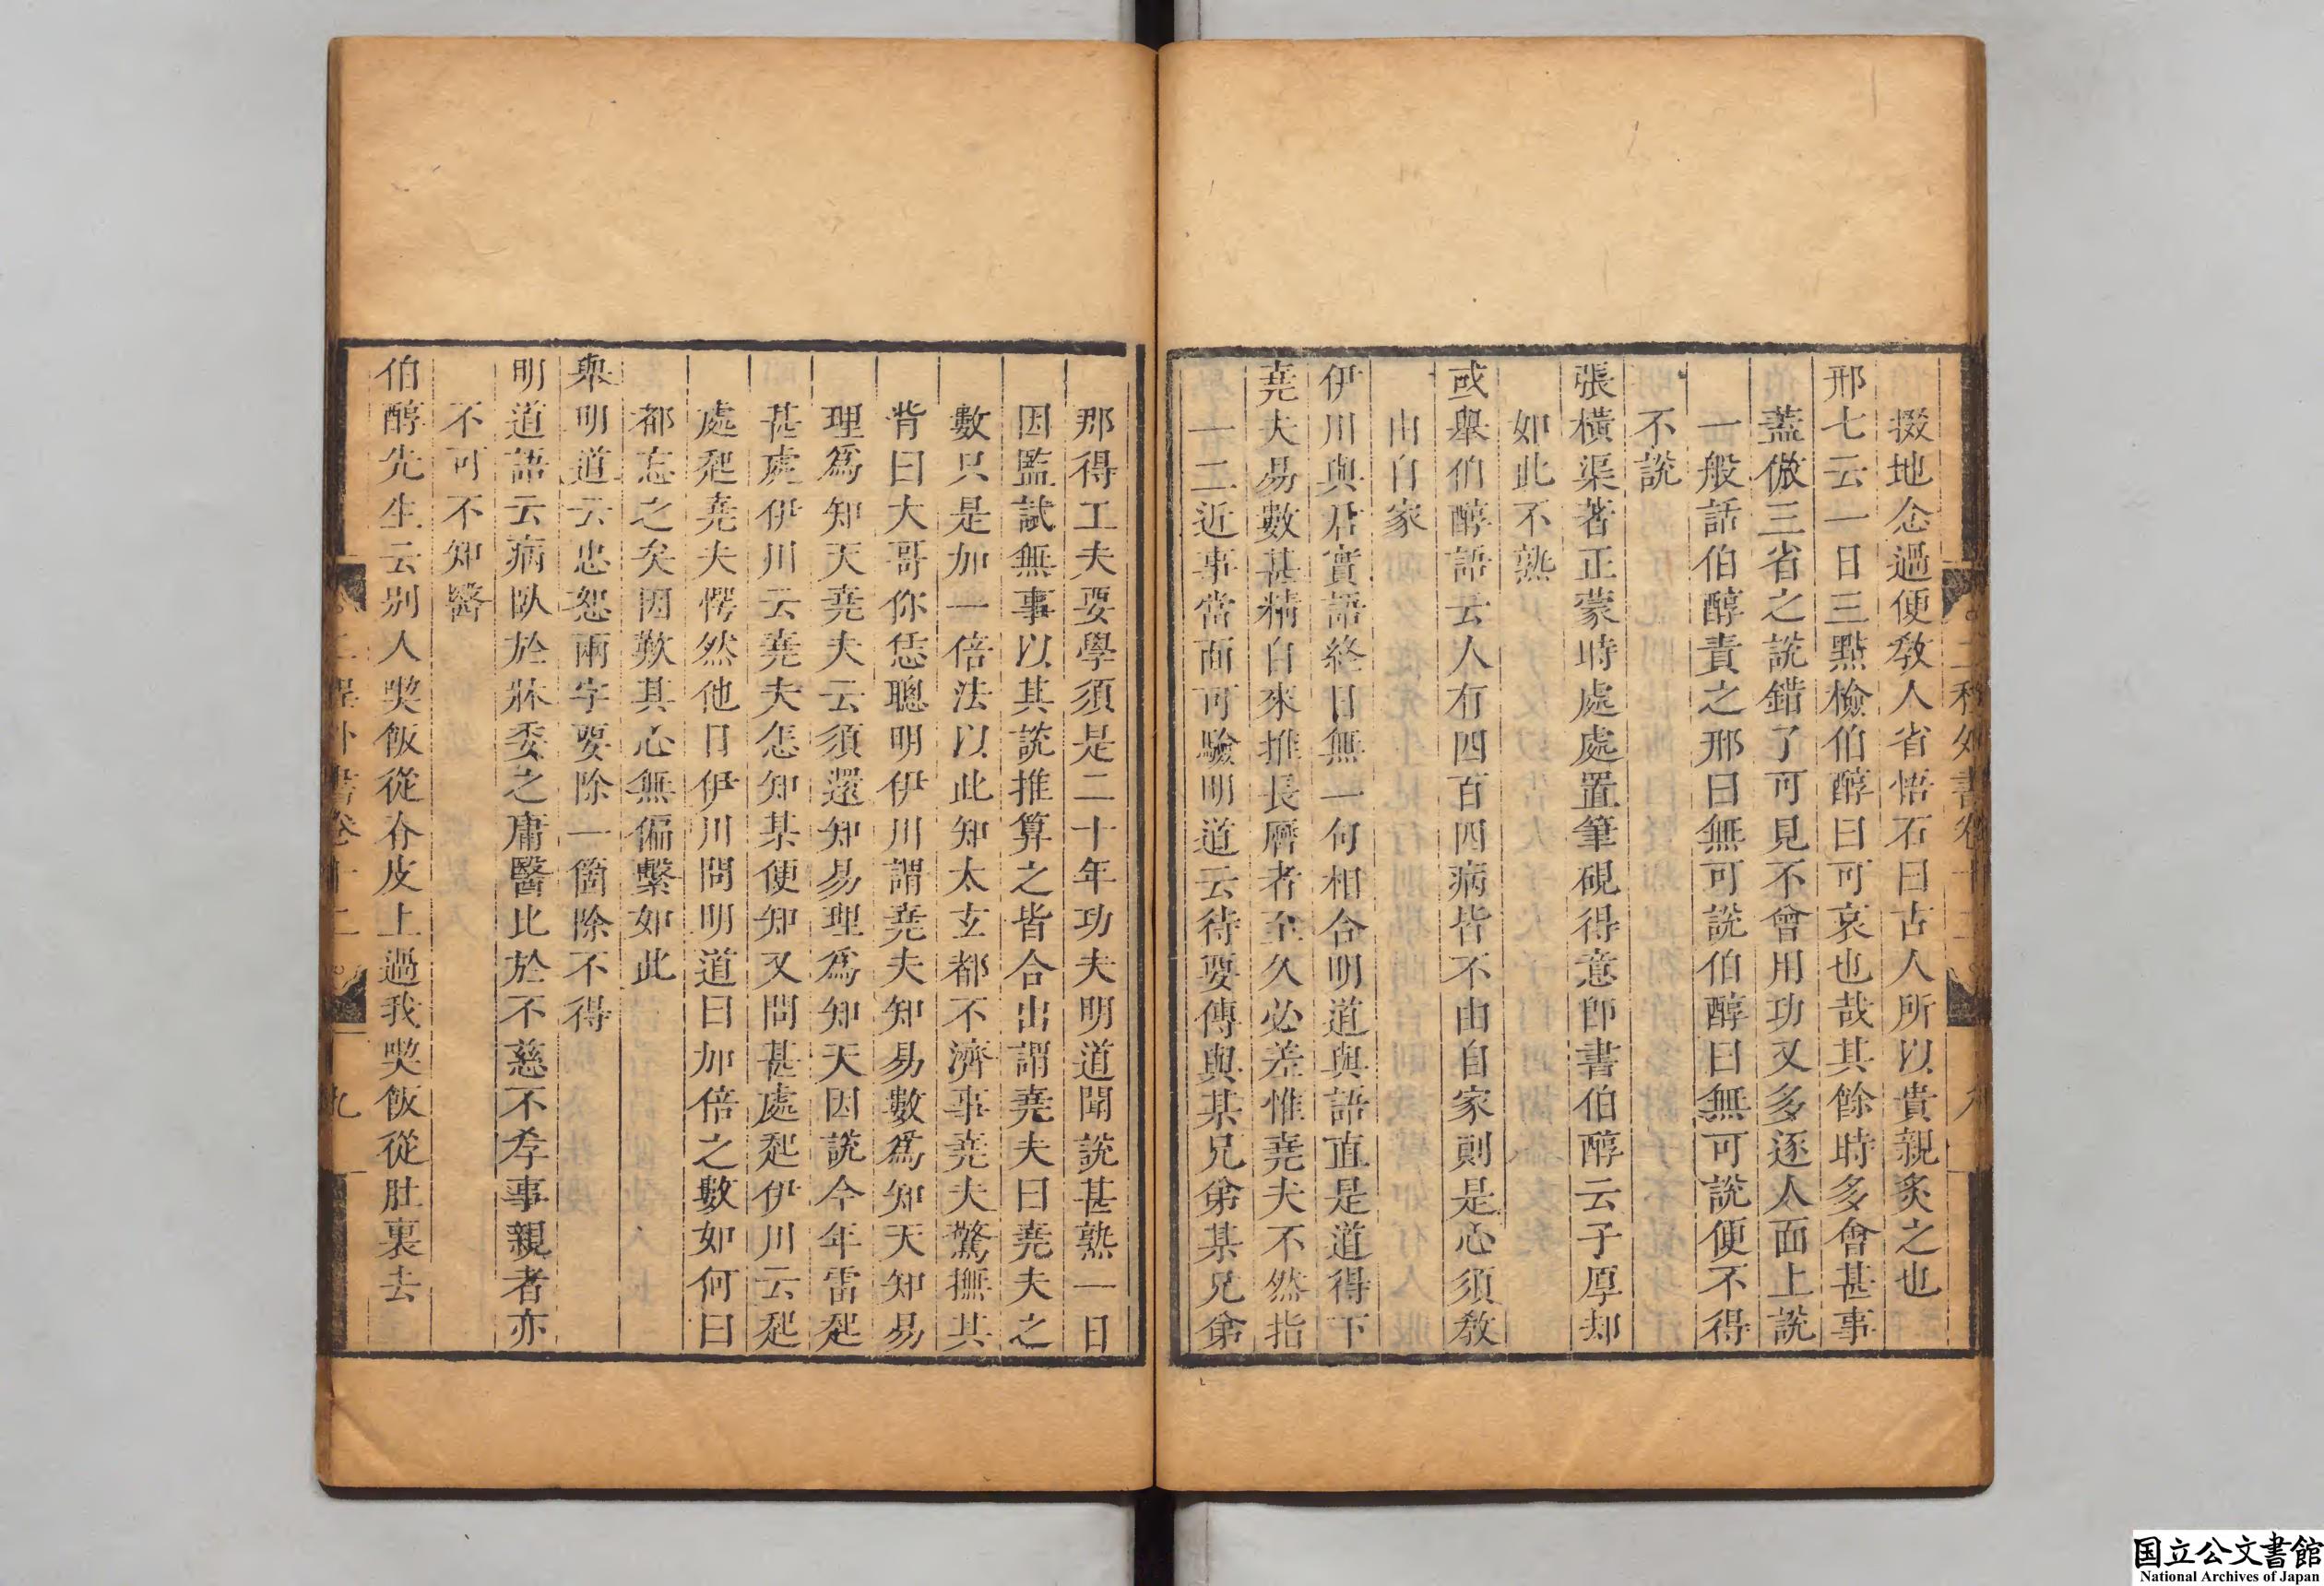 掇地念過便教人省悟石曰古人所以貴親炙之也
邢七云一日三點檢伯醇曰可哀也哉其餘時多會甚事
蓋倣三省之說錯了可見不曾用功又多逐人面上說
一般話伯醇責之邢曰無可說伯醇曰無可說便不得
不說
張橫渠著正蒙時處處置筆硯得意即書伯醇云子厚却
如此不熟
或舉伯醇語云人有四百四病皆不由自家則是心須教
由自家
伊川與君實語終日無一句相合明道與語直是道得下
堯夫易數甚精自來推長曆者至久必差惟堯夫不然指
一二近事當面可驗明道云待要傳與某兄弟某兄弟
那得工夫要學須是二十年功夫明道聞說甚熟一日
因監試無事以其說推算之皆合出謂堯夫曰堯夫之
數只是加一倍法以此知太玄都不濟事堯夫驚撫其
背曰大哥你恁聰明伊川謂堯夫知易數爲知天知易
理爲知天堯夫云須還知易理爲知天因說今年雷起
甚處伊川云堯夫怎知某便知又問甚處起伊川云起
處起堯夫愕然他日伊川問明道曰加倍之數如何曰
都忘之矣因歎其心無偏繫如此
舉明道云忠恕兩字要除一箇除不得
明道語云病臥於牀委之庸醫比於不慈不孝事親者亦
不可不知醫
伯醇先生云别人喫飯從脊皮上過我喫飯從肚裏去
二程外書卷十二
九
国立公文書館
National Archives of Japan